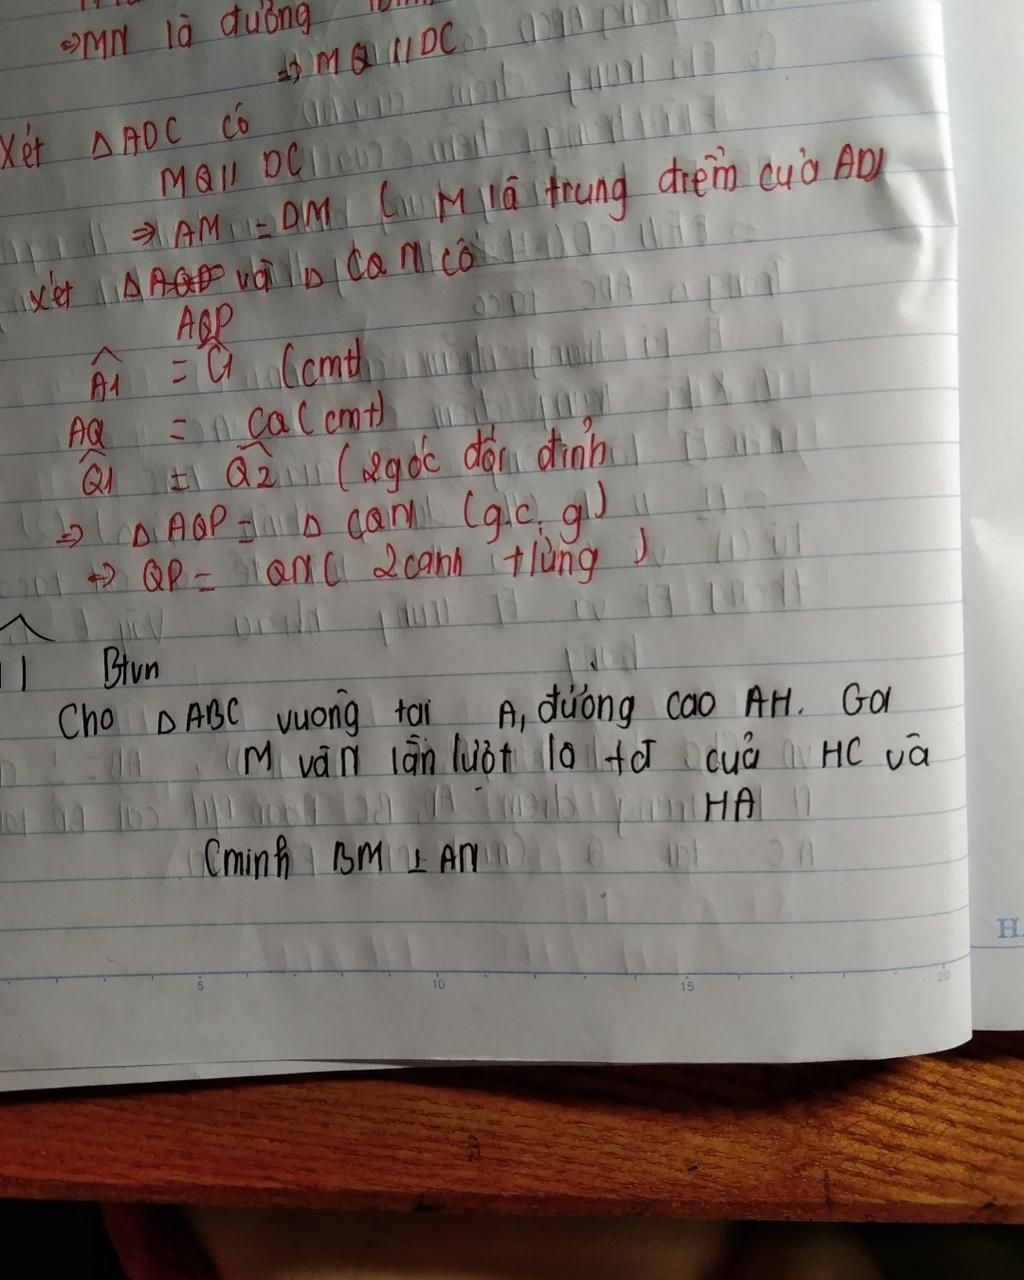 ⇒MN là đường
⇒ MQ // DC
Xét △ADC có
MQ // DC
⇒ AM = DM ( M là trung điểm của AD)
Xét △ và △ CQN có
AQP
Â1 = Ĉ1 (cmt)
AQ = CQ (cmt)
Q̂1 = Q̂2 (2góc đối đỉnh
⇒ △ AQP = △ CQN (g.c.g)
⇒ QP = QN ( 2cạnh tứng )
1 Btvn
Cho △ABC vuông tại A, đường cao AH. Gọi
M và N lần lượt là tđ của HC và
HA
Cminh BM ⊥ AN
5 10 15 20
H